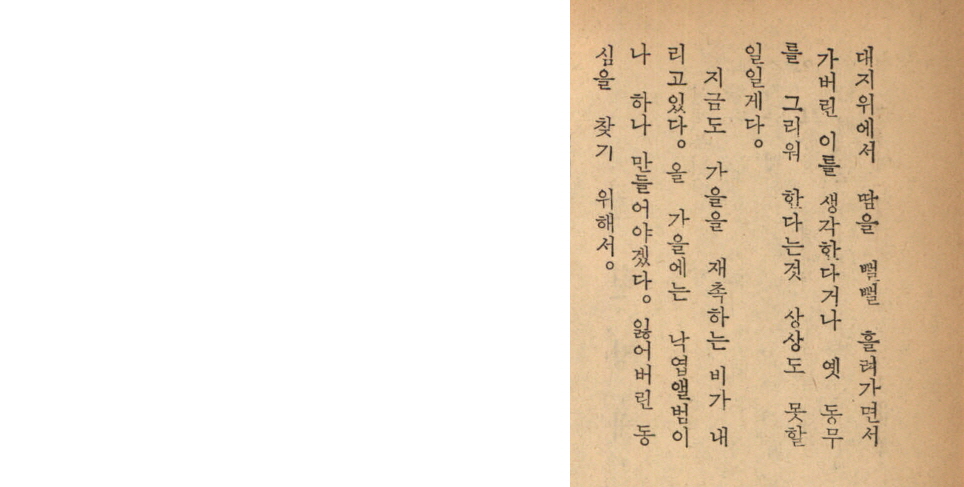 대지위에서 땀을 뻘뻘 흘려가면서
가버린 이를 생각한다거나 옛 동무
를 그리워 한다는것 상상도 못할
일일게다。
지금도 가을을 재촉하는 비가 내
리고있다。올 가을에는 낙엽앨범이
나 하나 만들어야겠다。잃어버린 동
심을 찾기 위해서。